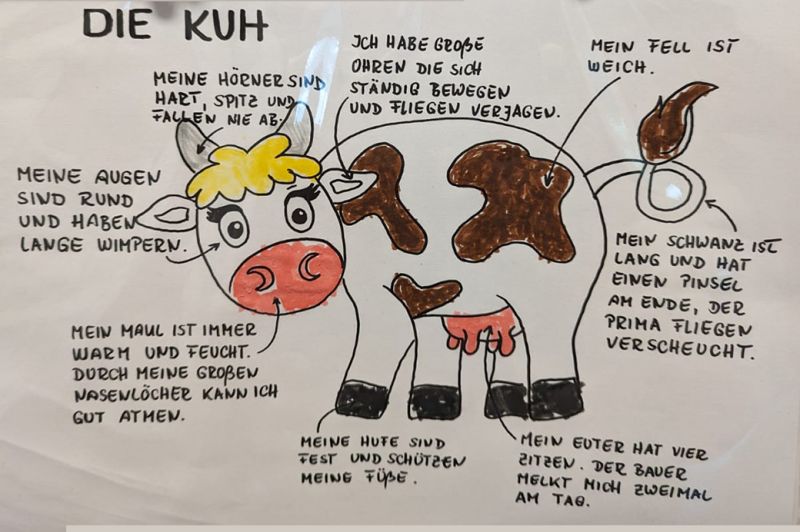 DIE KUH
MEINE HÖRNER SIND
HART, SPITZ UND
FALLEN NIE AB.
ICH HABE GROßE
OHREN DIE SICH
STÄNDIG BEWEGEN
UND FLIEGEN VERJAGEN.
MEIN FELL IST
WEICH.
MEINE AUGEN
SIND RUND
UND HABEN
LANGE WIMPERN.
MEIN SCHWANZ IST
LANG UND HAT
EINEN PINSEL
AM ENDE, DER
PRIMA FLIEGEN
VERSCHEUCHT.
MEIN MAUL IST IMMER
WARM UND FEUCHT.
DURCH MEINE GROßEN
NASENLÖCHER KANN ICH
GUT ATMEN.
MEINE HUFE SIND
FEST UND SCHÜTZEN
MEINE FÜßE.
MEIN EUTER HAT VIER
ZITZEN. DER BAUER
MELKT MICH ZWEIMAL
AM TAG.